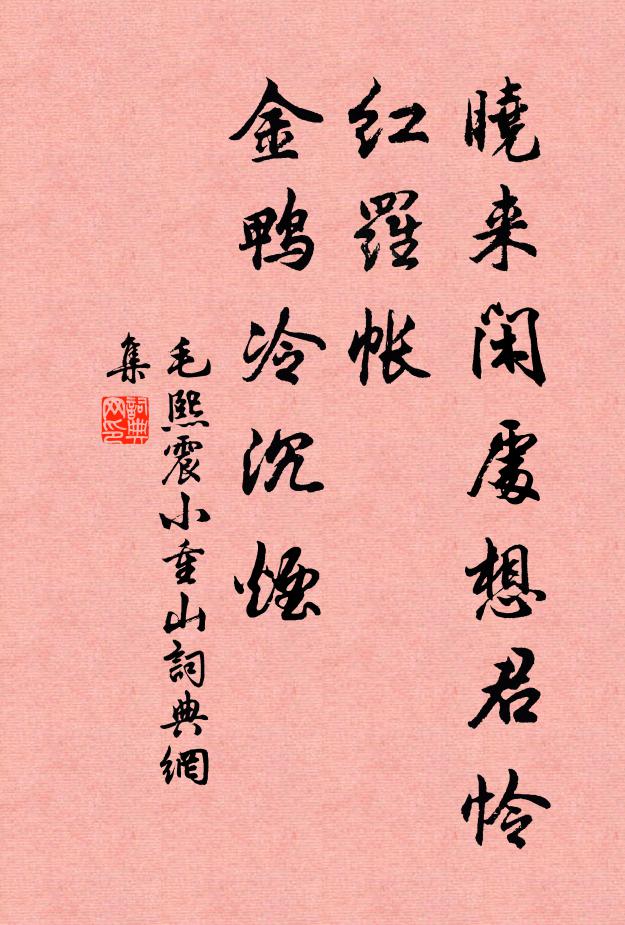 曉来閑處想君怜
紅羅帳
金鴨冷沉煙
毛熙震小重山詞典網
集
詞典網印